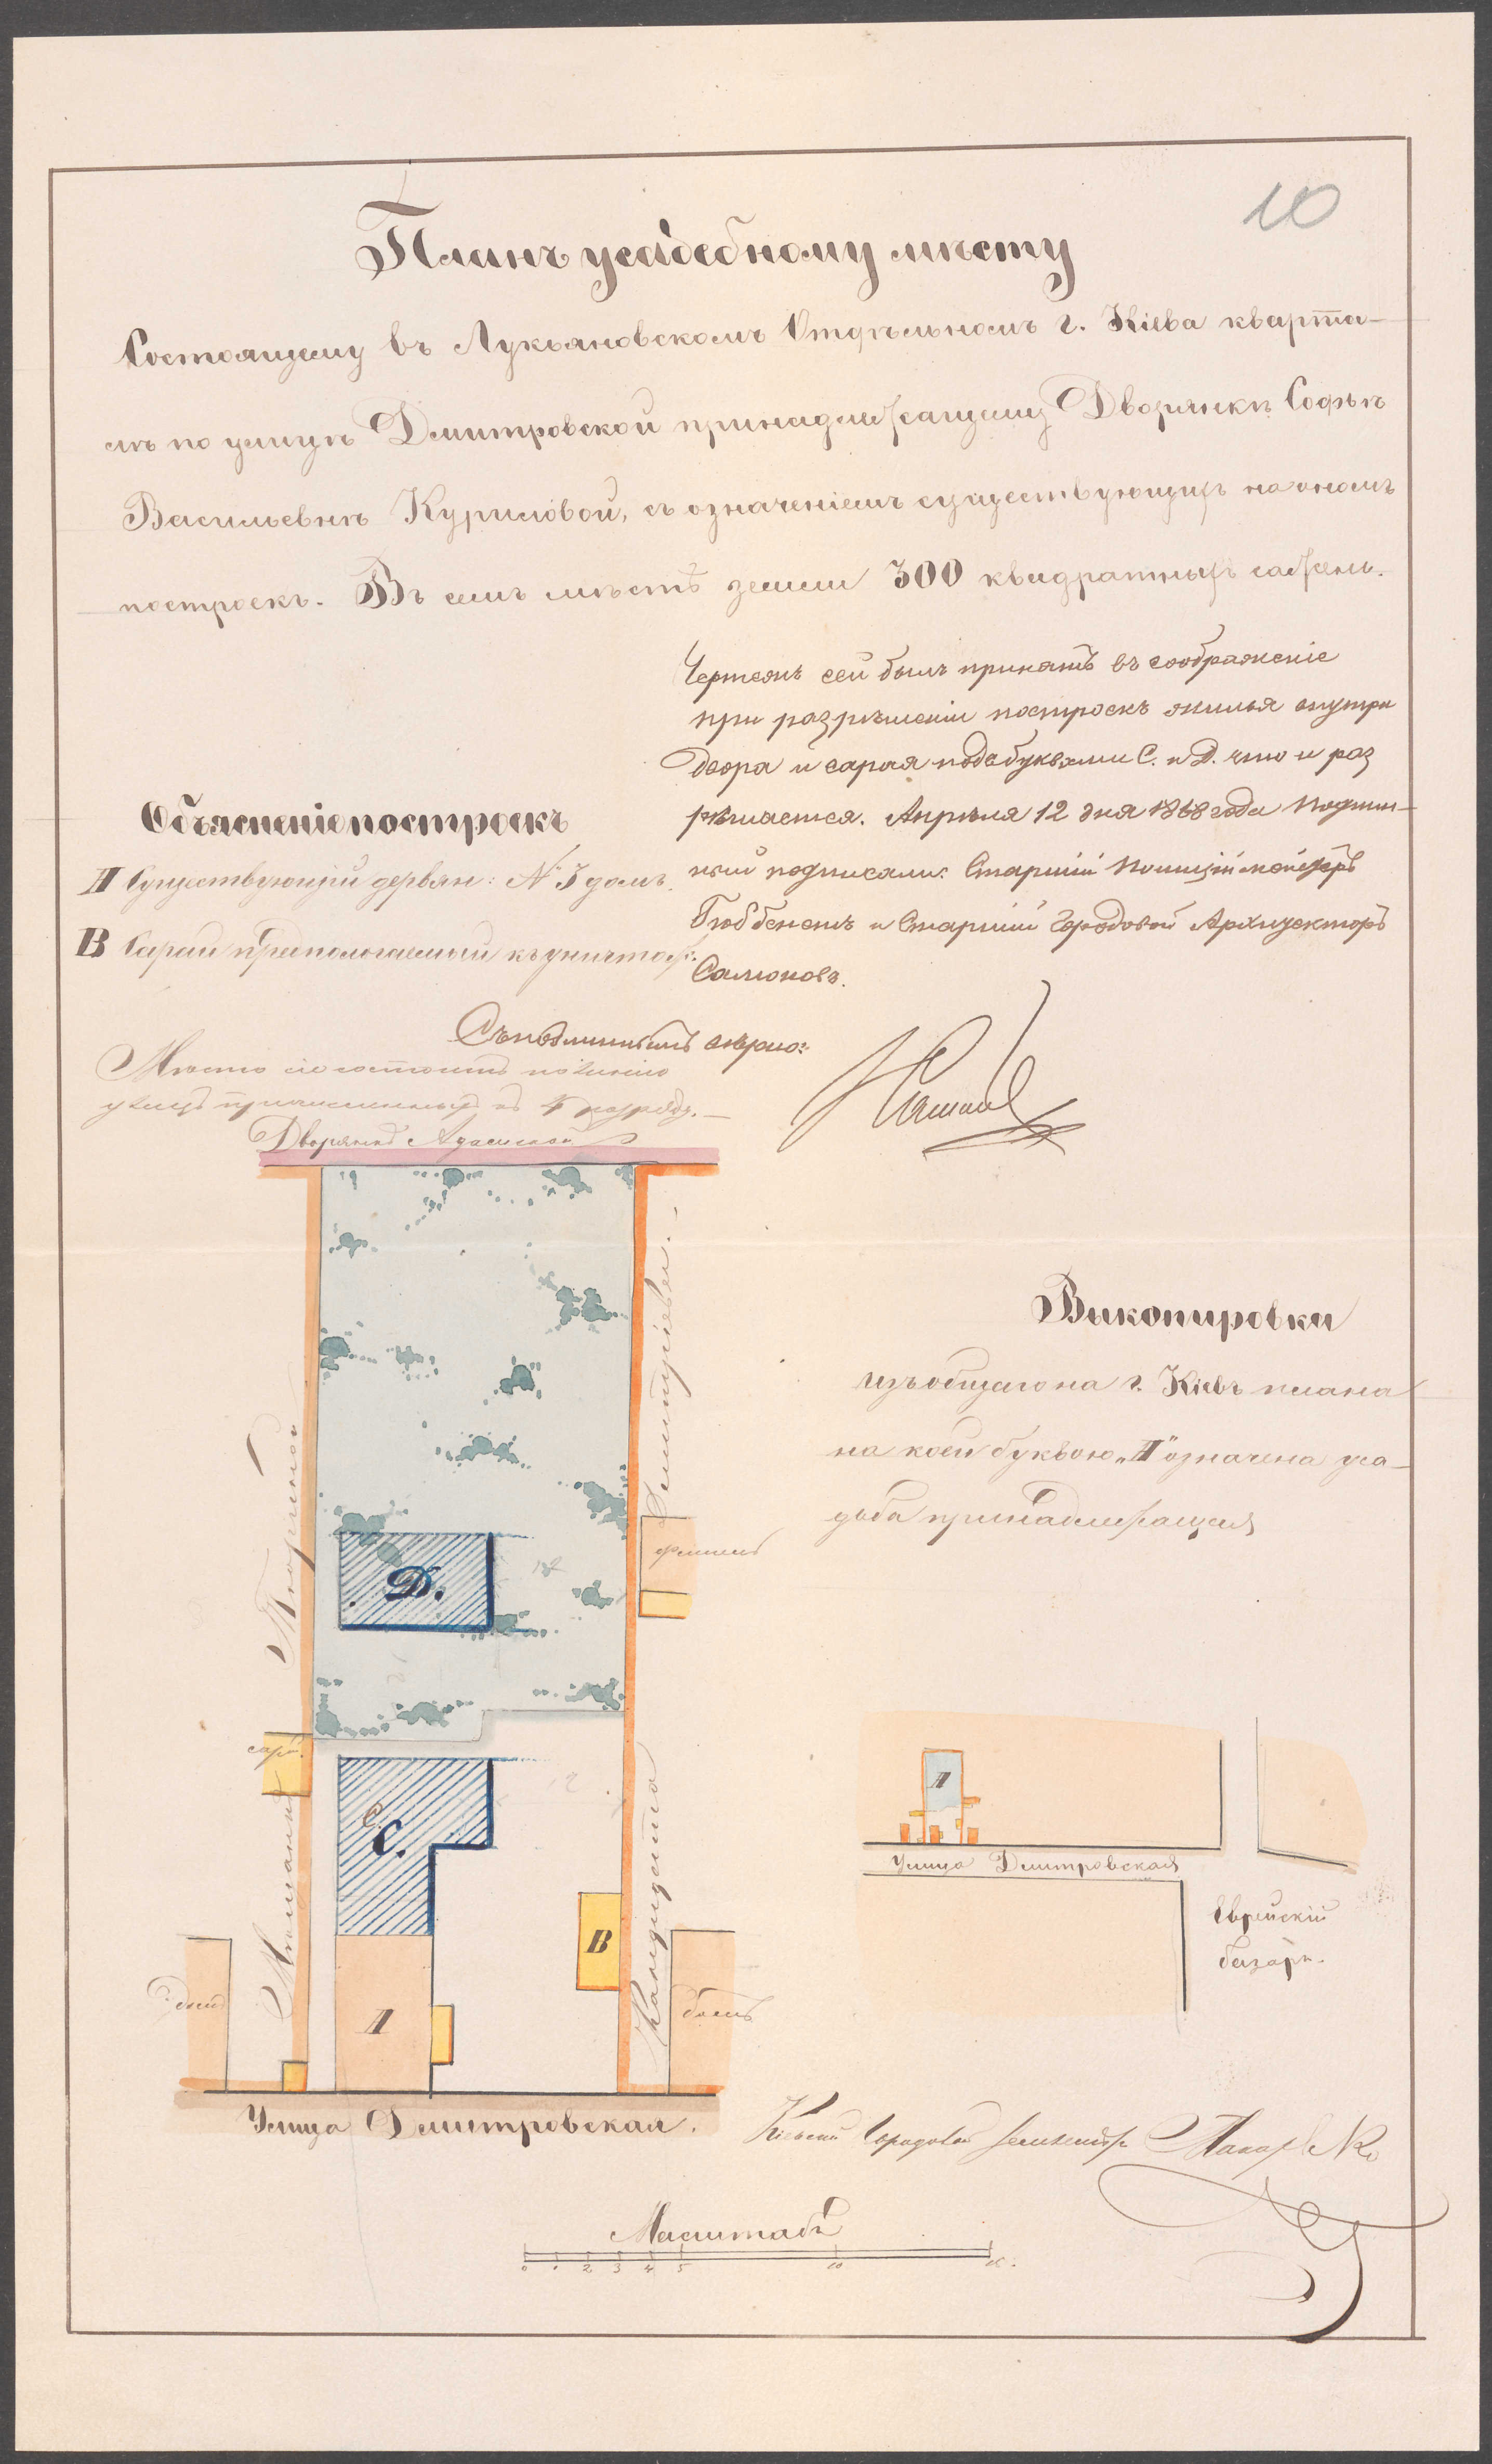 10
Планъ усадебному мѣсту
Состоящему въ Лукьяновскомъ Отдѣльномъ г. Кіева кварта-
лѣ по улицѣ Дмитровской принадлежащему Дворянкѣ Софьѣ
Васильевнѣ Куриловой, съ означеніемъ существующихъ на ономъ
построекъ. Въ семъ мѣстѣ земли 300 квадратныхъ сажень.
Чертежъ сей былъ принятъ въ соображеніе
при разрѣшеніи построекъ жилья внутри
двора и сарая подъ буквами С. и D. что и раз
рѣшается. Апрѣля 12 дня 1868 года Подлин-
ный подписали: Старшій Полиціймейстеръ
и Старшій Городовой Архитекторъ
Объясненіе построекъ
А Существующій дервян: № 3 домъ.
В Сарай предполагаемый къ уничтож:
Съ подлиннымъ вѣрно:
Мѣсто сіе состоитъ по линіи
улицъ причисленныхъ къ 4 разряду.
Дворянкѣ
D.
флигель
сар.
С.
С.
В
А
домъ
домъ
Кандидата
Улица Дмитровская.
Выкопировка
изъ общаго на г. Кіевъ плана
на коей буквою „А" означена уса-
дьба принадлежащая
А
Улица Дмитровская
Еврейскій
базаръ.
Кіевскій Городовой Землемѣръ
Масштабъ
0 1 2 3 4 5 10 15.